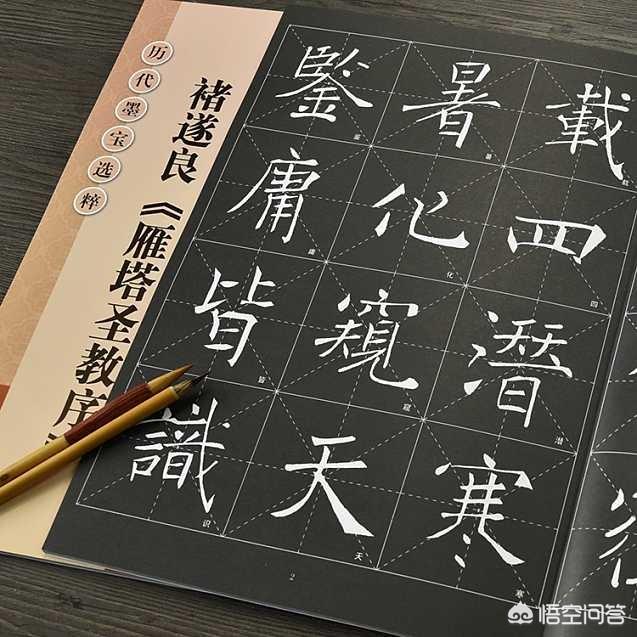 历代墨宝选粹
褚遂良《雁塔圣教序
載四潛寒
四潜寒
暑化窺天
暑化窥天
鑒庸皆識
庸皆识
2
悟空问答